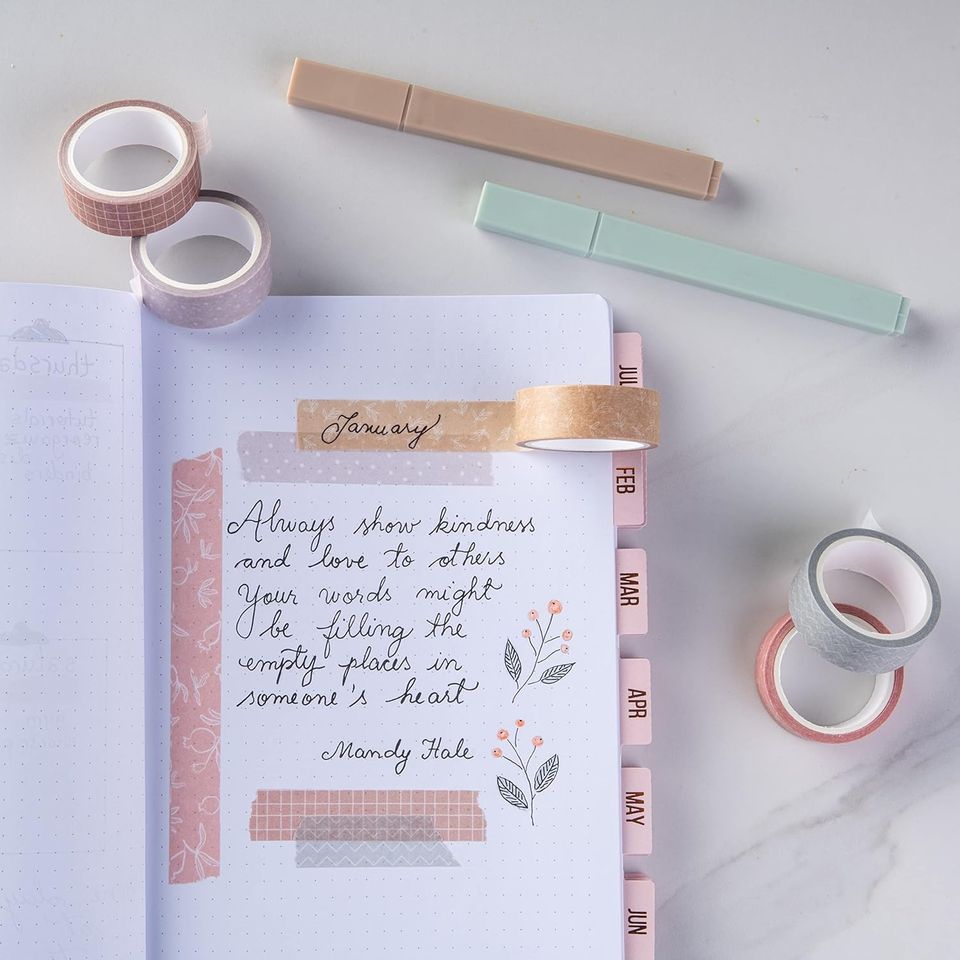 January
Always show kindness
and love to others
Your words might
be filling the
empty places in
someone's heart
Mandy Hale
JUL
FEB
MAR
APR
MAY
JUN